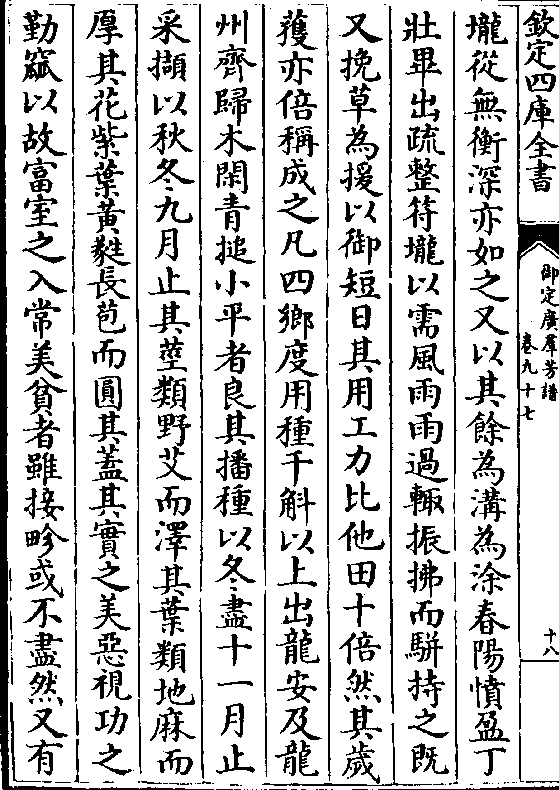 欽定四庫全書
御定廣羣芳譜
卷九十七
十八
壠從無衡深亦如之又以其餘為溝為涂春陽憤盈丁
壯畢出疏整符壠以需風雨雨過輒振拂而駢持之既
又挽草為援以御短日其用工力比他田十倍然其歲
穫亦倍稱成之凡四鄉度用種千斛以上出龍安及龍
州齊歸木閑青塠小平者良其播種以冬盡十一月止
采擷以秋冬九月止其莖類野艾而澤其葉類地麻而
厚其花紫葉黃蕤長苞而圓其蓋其實之美惡視功之
勤窳以故富室之入常美貧者雖接畛或不盡然又有